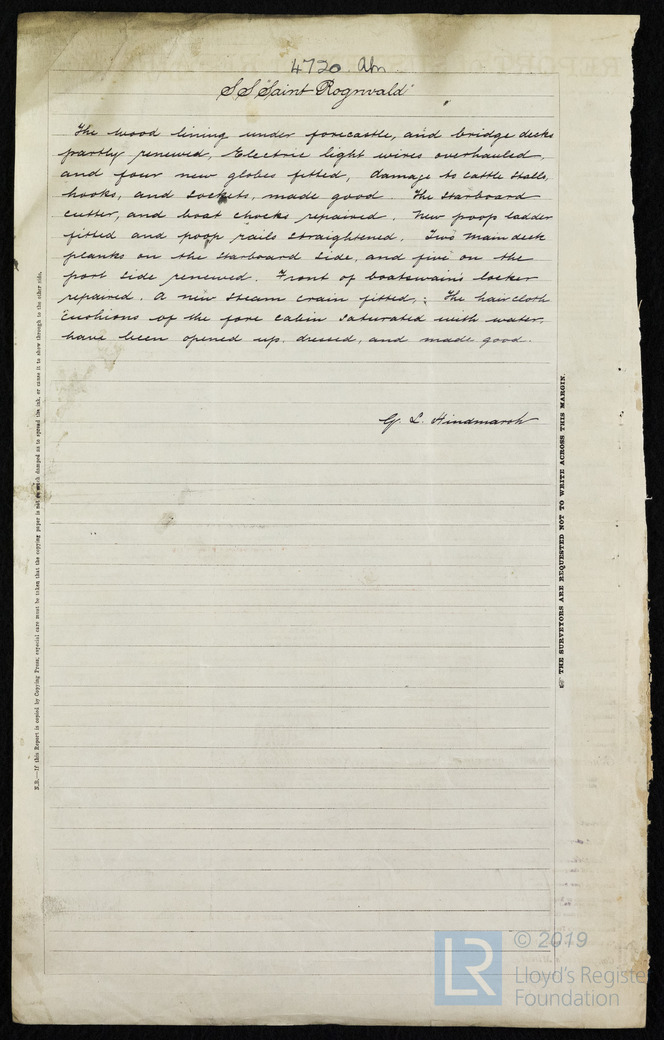 4720 Abn
S.S. "Saint Rognvald"
The wood lining under forecastle, and bridge decks
partly renewed, Electric light wires overhauled,
and four new globes fitted, damage to cattle stalls,
hooks, and sockets, made good. The starboard
cutter, and boat chocks repaired. New poop ladder
fitted and poop rails straightened. Two main deck
planks on the starboard side, and five on the
port side renewed. Front of boatswain's locker
repaired. A new steam crain fitted, The hair cloth
cushions of the fore cabin saturated with water,
have been opened up, dressed, and made good.
G. L. Hindmarsh
N.B.—If this Report is copied by Copying Press, especial care must be taken that the copying paper is not so much damped as to spread the ink, or cause it to show through to the other side.
THE SURVEYORS ARE REQUESTED NOT TO WRITE ACROSS THIS MARGIN.
LR
© 2019
Lloyd's Register
Foundation